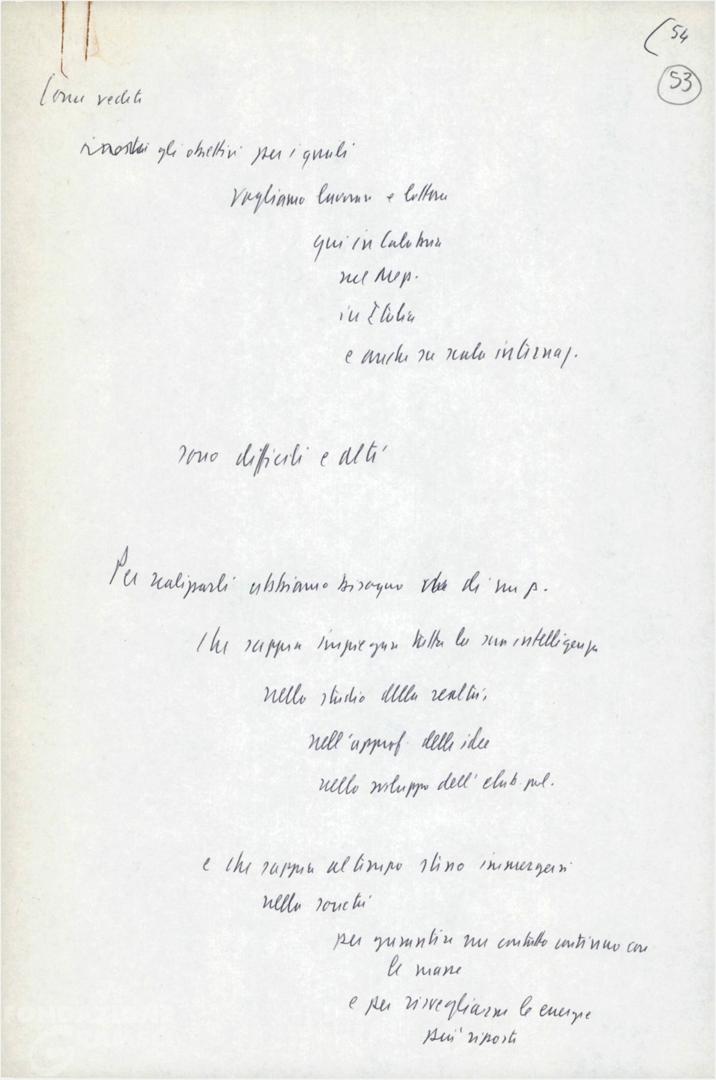 (54
53
Come vedete
i nostri gli obiettivi per i quali
vogliamo lavorare e lottare
qui in Calabria
nel Mezz.
in Italia
e anche su scala internaz.
sono difficili e alti
Per realizzarli abbiamo bisogno di un p.
che sappia impiegare tutta la sua intelligenza
nello studio della realtà,
nell'approf. delle idee
nello sviluppo dell'elab. pol.
e che sappia al tempo stesso immergersi
nella società
per garantire un contatto continuo con
le masse
e per risvegliarne le energie
più riposte